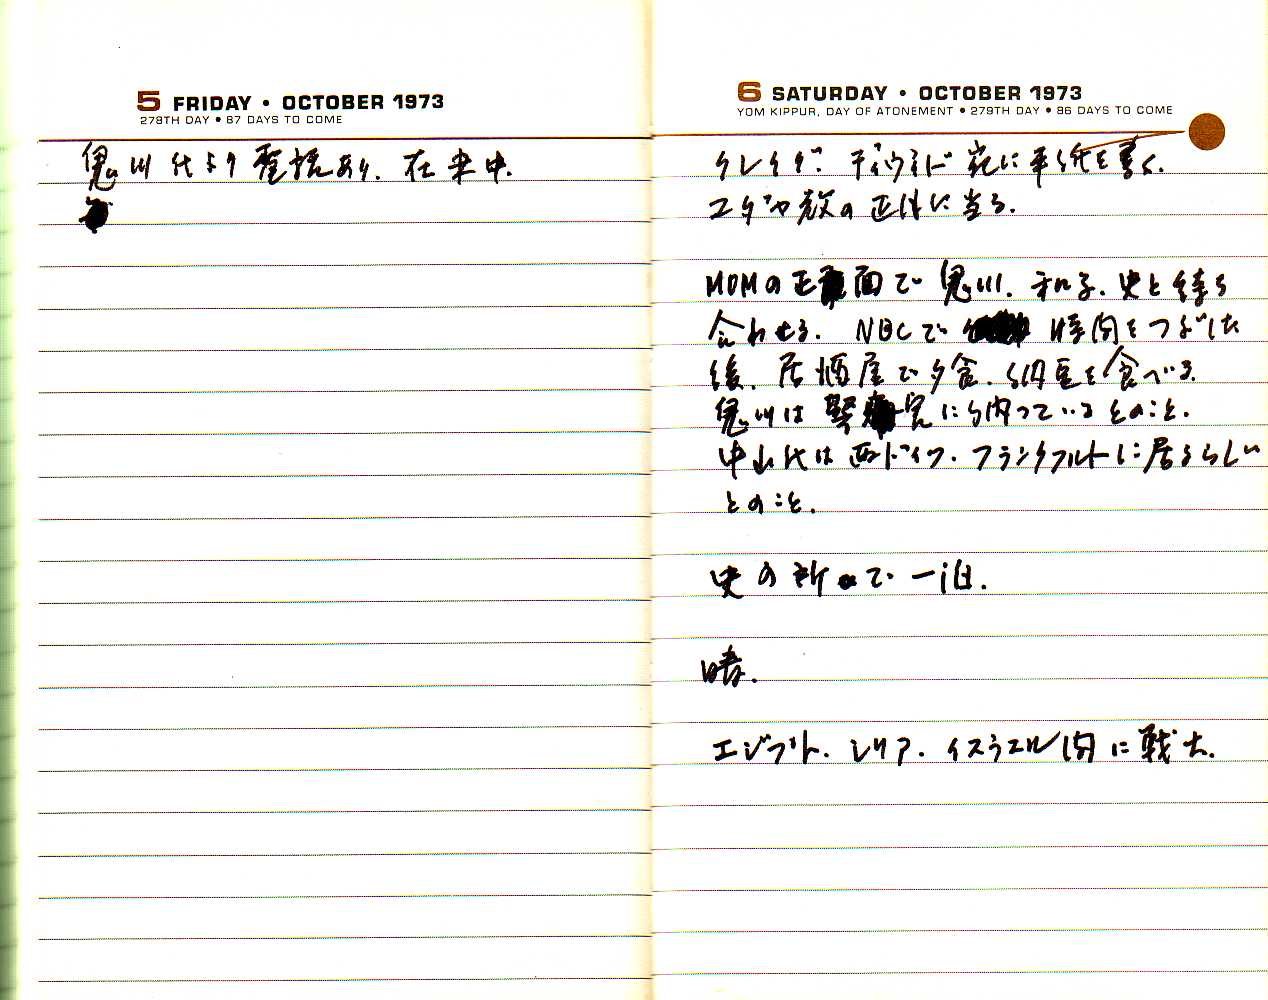 5 FRIDAY • OCTOBER 1973
278TH DAY • 87 DAYS TO COME
鬼川氏より電話あり. 在米中.
6 SATURDAY • OCTOBER 1973
YOM KIPPUR, DAY OF ATONEMENT • 279TH DAY • 86 DAYS TO COME
クレイグ. デイヴィド宛に手紙を書く.
ユダヤ教の正月に当る.
MOMの正面で鬼川. 和子. 史と待ち
合わせる. NBCで 時間をつぶした
後. 居酒屋で夕食. 納豆を食べる.
鬼川は に っているとのこと.
中山氏は西ドイツ. フランクフルトに居るらしい
とのこと.
史の所で一泊.
晴.
エジプト. シリア. イスラエル間に戦火.